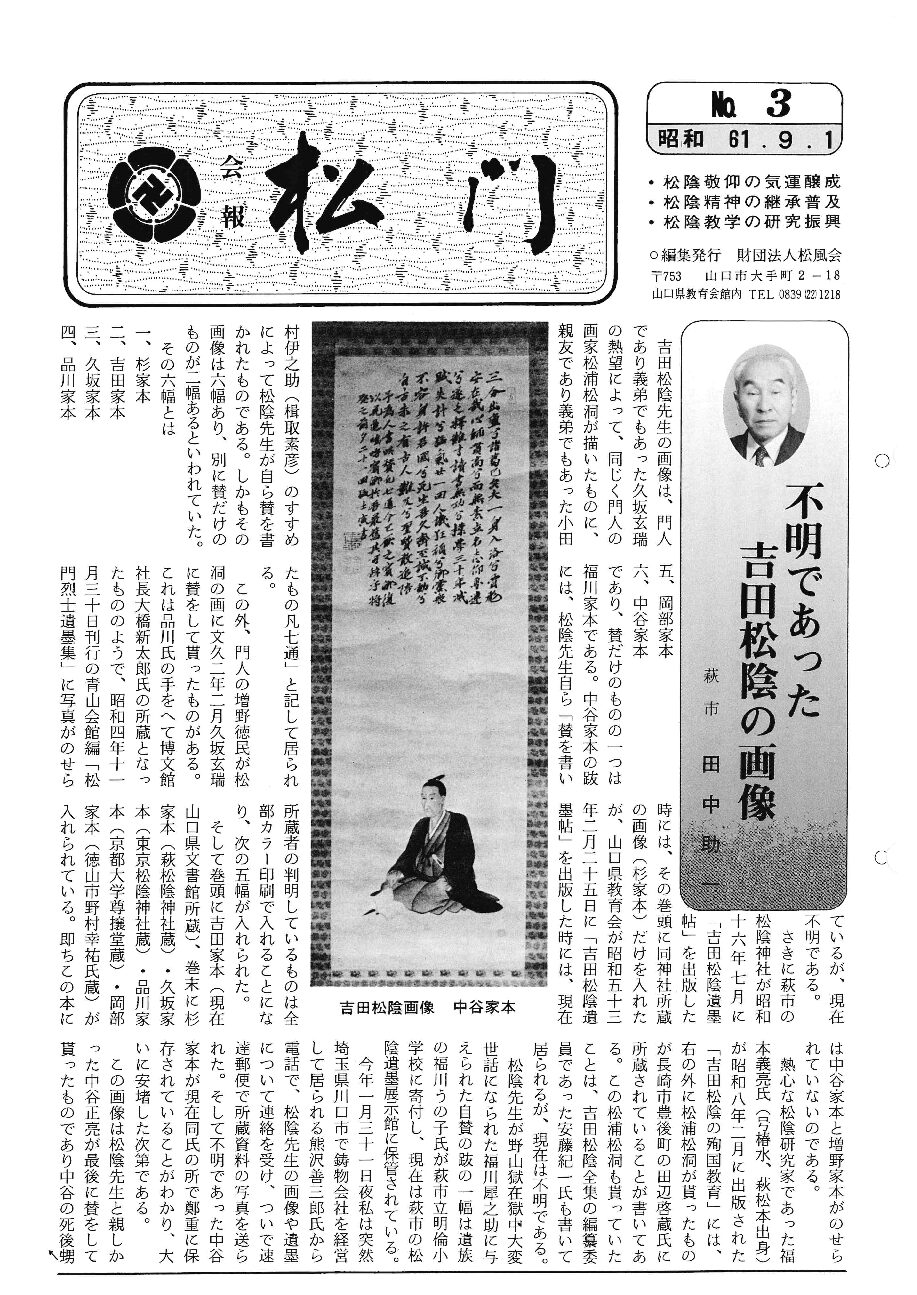 No. 3
昭和 61.9.1
会報 松門
・松陰敬仰の気運醸成
・松陰精神の継承普及
・松陰教学の研究振興
○編集発行 財団法人松風会
〒753 山口市大手町2－18
山口県教育会館内 TEL 0839(22)1218
不明であった
吉田松陰の画像
萩市 田中助一
吉田松陰先生の画像は、門人
であり義弟でもあった久坂玄瑞
の熱望によって、同じく門人の
画家松浦松洞が描いたものに、
親友であり義弟でもあった小田
村伊之助（楫取素彦）のすすめ
によって松陰先生が自ら賛を書
かれたものである。しかもその
画像は六幅あり、別に賛だけの
ものが二幅あるといわれていた。
その六幅とは
一、杉家本
二、吉田家本
三、久坂家本
四、品川家本
五、岡部家本
六、中谷家本
であり、賛だけのものの一つは
福川家本である。中谷家本の跋
には、松陰先生自ら「賛を書い
たもの凡七通」と記して居られ
る。
この外、門人の増野徳民が松
洞の画に文久二年二月久坂玄瑞
に賛をして貰ったものがある。
これは品川氏の手をへて博文館
社長大橋新太郎氏の所蔵となっ
たもののようで、昭和四年十一
月三十日刊行の青山会館編「松
門烈士遺墨集」に写真がのせら
ているが、現在
不明である。
さきに萩市の
松陰神社が昭和
十六年七月に
「吉田松陰遺墨
帖」を出版した
時には、その巻頭に同神社所蔵
の画像（杉家本）だけを入れた
が、山口県教育会が昭和五十三
年二月二十五日に「吉田松陰遺
墨帖」を出版した時には、現在
所蔵者の判明しているものは全
部カラー印刷で入れることにな
り、次の五幅が入れられた。
そして巻頭に吉田家本（現在
山口県文書館所蔵）、巻末に杉
家本（萩松陰神社蔵）・久坂家
本（東京松陰神社蔵）・品川家
本（京都大学尊攘堂蔵）・岡部
家本（徳山市野村幸祐氏蔵）が
入れられている。即ちこの本に
は中谷家本と増野家本がのせら
れていないのである。
熱心な松陰研究家であった福
本義亮氏（号椿水、萩松本出身）
が昭和八年二月に出版された
「吉田松陰の殉国教育」には、
右の外に松浦松洞が貰ったもの
が長崎市豊後町の田辺啓蔵氏に
所蔵されていることが書いてあ
る。この松浦松洞も貰っていた
ことは、吉田松陰全集の編纂委
員であった安藤紀一氏も書いて
居られるが、現在は不明である。
松陰先生が野山獄在獄中大変
世話になられた福川犀之助に与
えられた自賛の跋の一幅は遺族
の福川うの子氏が萩市立明倫小
学校に寄付し、現在は萩市の松
陰遺墨展示館に保管されている。
今年一月三十一日夜私は突然
埼玉県川口市で鋳物会社を経営
して居られる熊沢善三郎氏から
電話で、松陰先生の画像や遺墨
について連絡を受け、ついで速
達郵便で所蔵資料の写真を送ら
れた。そして不明であった中谷
家本が現在同氏の所で鄭重に保
存されていることがわかり、大
いに安堵した次第である。
この画像は松陰先生と親しか
った中谷正亮が最後に賛をして
貰ったものであり中谷の死後甥
吉田松陰画像 中谷家本